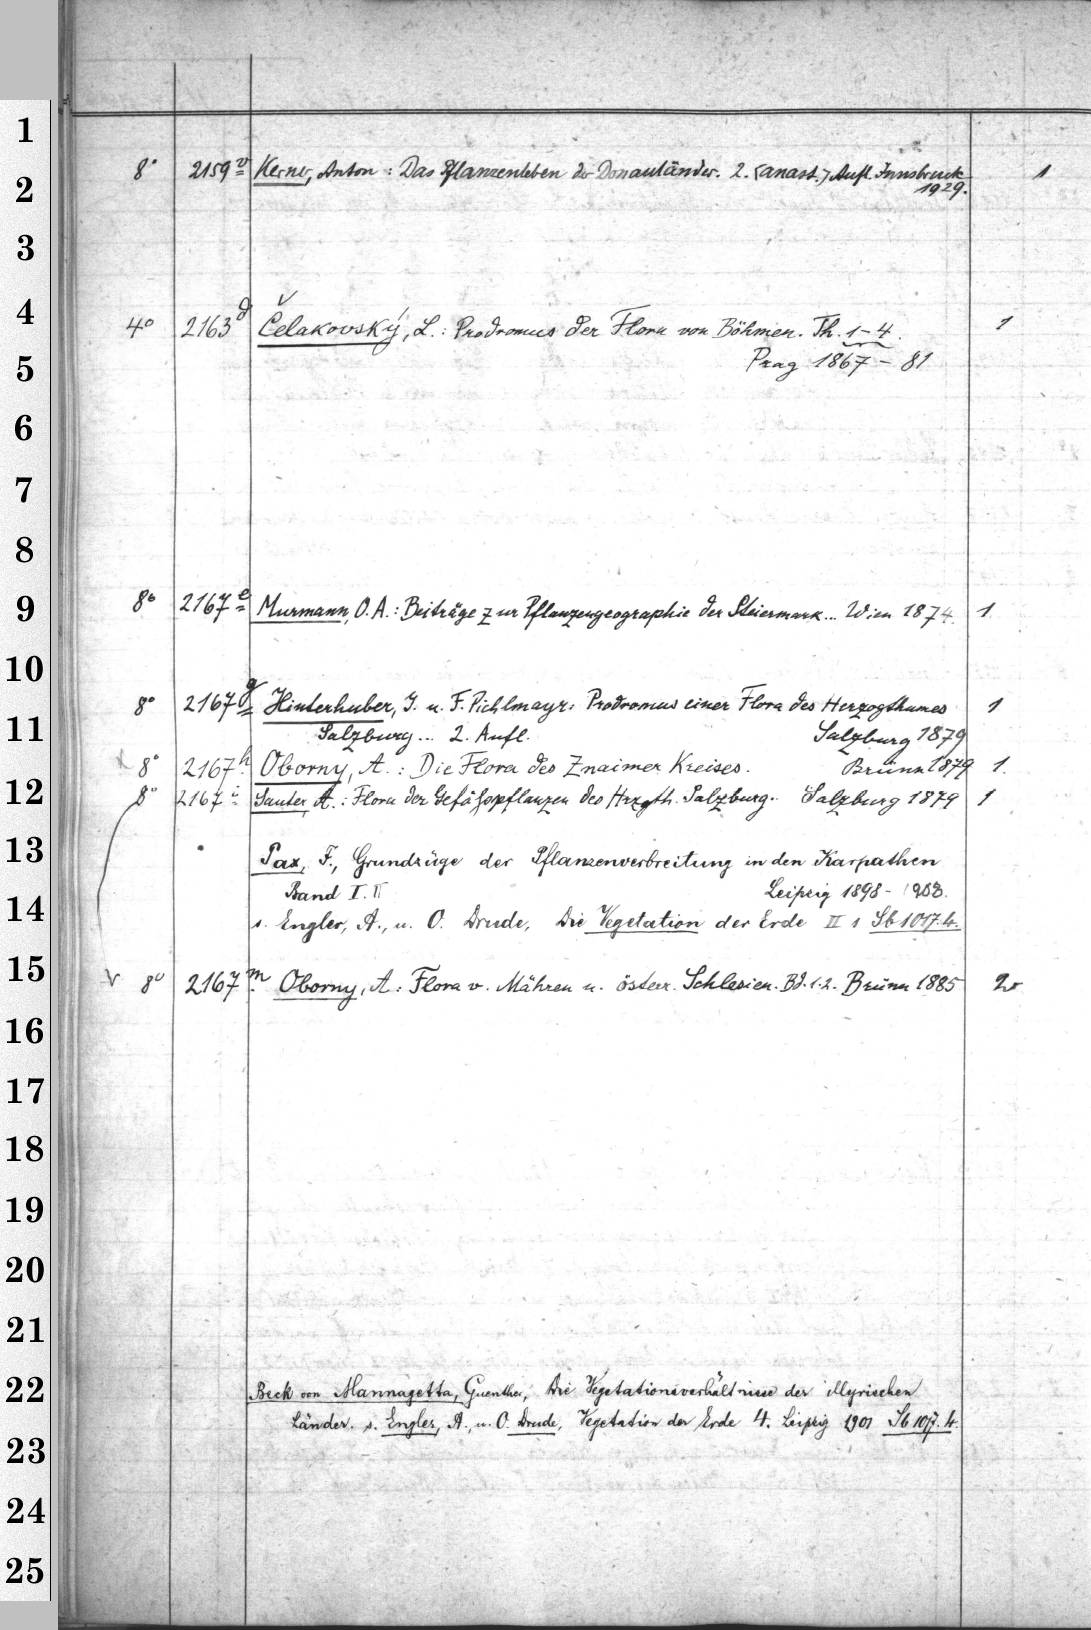 1
2
3
4
5
6
7
8
9
10
11
12
13
14
15
16
17
18
19
20
21
22
23
24
25
8° 2159 v Kerner, Anton : Das Pflanzenleben der Donauländer. 2. (anast.) Aufl. Innsbruck 1
1929.
4° 2163 g Čelakovský, L. : Prodromus der Flora von Böhmen. Th. 1-4. 1
Prag 1867 - 81
8° 2167 e Murmann, O. A. : Beiträge zur Pflanzengeographie der Steiermark... Wien 1874. 1
8° 2167 g Hinterhuber, J. u. F. Pichlmayr: Prodromus einer Flora des Herzogthumes 1
Salzburg ... 2. Aufl. Salzburg 1879
8° 2167 h Oborny, A. : Die Flora des Znaimer Kreises. Brünn 1879 1.
8° 2167 i Sauter, A. : Flora der Gefäßspflanzen des Hrzgth. Salzburg. Salzburg 1879 1
Pax, F., Grundzüge der Pflanzenverbreitung in den Karpathen
Band I. II Leipzig 1898 - 1908.
s. Engler, A., u. O. Drude, Die Vegetation der Erde II s Sb 1017. 4.
8° 2167 m Oborny, A : Flora v. Mähren u. österr. Schlesien. Bd. 1.2. Brünn 1885 2
Beck von Mannagetta, Guenther, Die Vegetationsverhältnisse der illyrischen
Länder. s. Engler, A., u. O. Drude, Vegetation der Erde 4. Leipzig 1901 Sb 1017. 4.